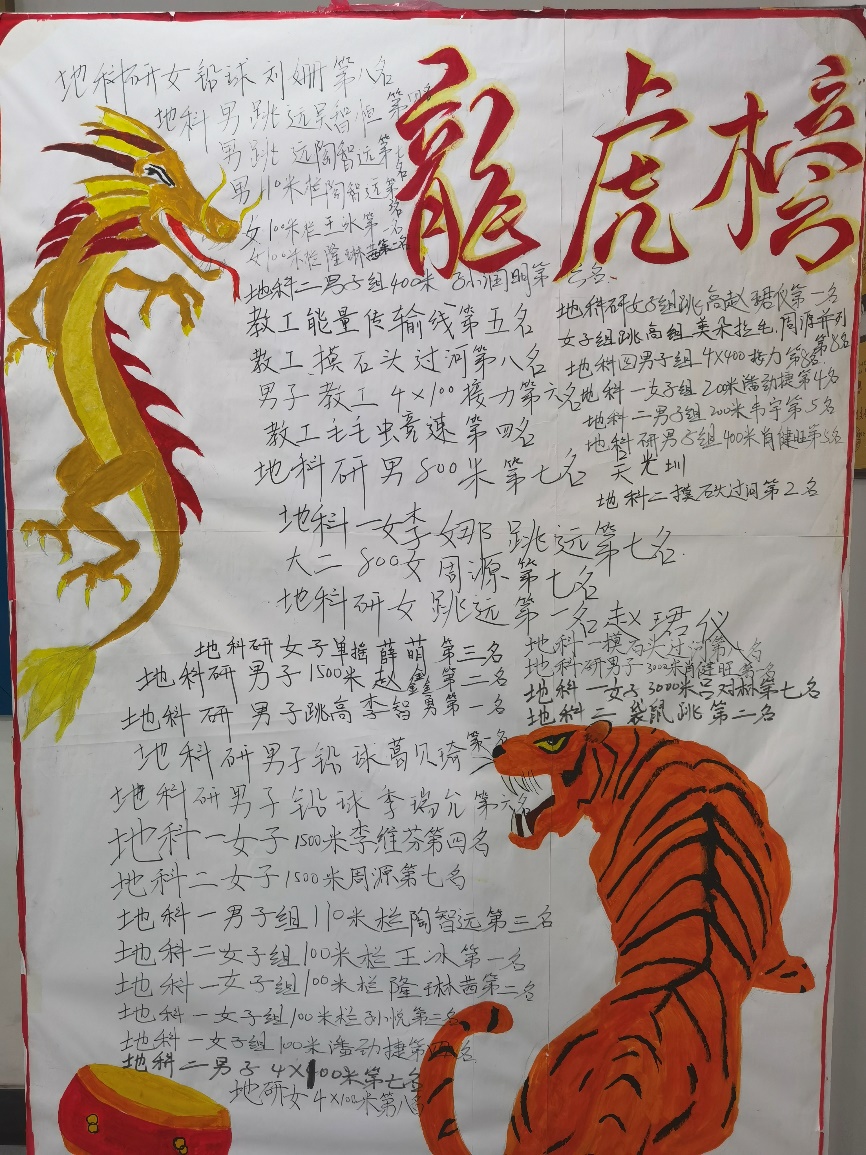 龍虎榜
地科研女铅球刘姗第八名
地科男跳远吴智恒第四名
男跳远陶智远第七名
男110米栏陶智远第三名
女100米栏王冰第一名
女100米栏隆琳茜第二名
地科二男子组400米孙润明第六名
教工能量传输线第五名
教工摸石头过河第八名
男子教工4×100接力第六名
教工毛毛虫竞速第四名
地科研男800米第七名吴光圳
地科一女李娜跳远第七名
大二800女周源第七名
地科研女跳远第一名赵珺仪
地科研女子组跳高赵珺仪第一名
女子组跳高组美朵拉毛,周源并列第8名
地科四男子组4×400接力第8名
地科一女子组200米潘动捷第4名
地科二男子组200米韦宇第5名
地科研男子组400米肖健旺第5名
地科二摸石头过河第2名
地科一摸石头过河第八名
地科研男子3000米肖健旺第名
地科一女子3000米吕对林第七名
地科二袋鼠跳第二名
地科研女子单摇薛萌第三名
地科研男子1500米赵鑫第二名
地科研男子跳高李智勇第一名
地科研男子铅球葛贝琦第一名
地科研男子铅球季瑞允第六名
地科一女子1500米李维芬第四名
地科二女子1500米周源第七名
地科一男子组110米栏陶智远第三名
地科二女子组100米栏王冰第一名
地科一女子组100米栏隆琳茜第二名
地科一女子组100米栏孙悦第三名
地科一女子组100米潘动捷第四名
地科二男子4×100米第七名
地研女4×100米第八名